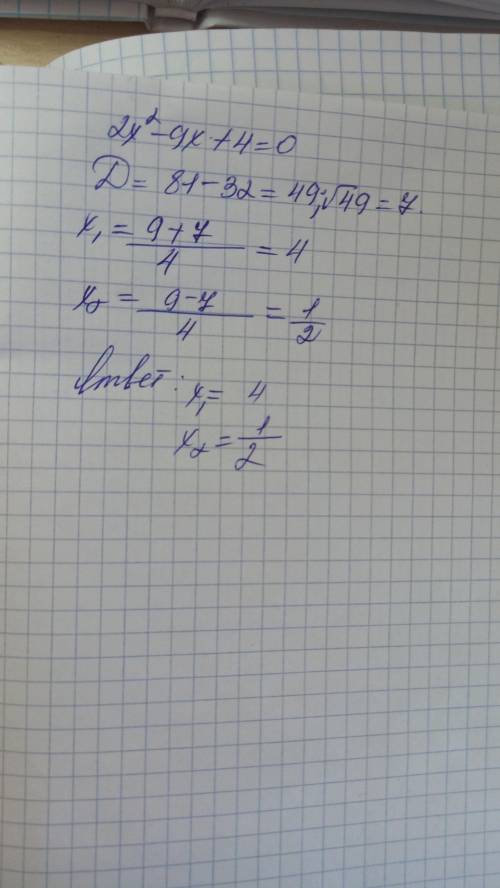 2x² - 9x + 4 = 0
D = 81 - 32 = 49; √49 = 7.
x₁ = (9 + 7)/4 = 4
x₂ = (9 - 7)/4 = 1/2
Ответ: x₁ = 4
x₂ = 1/2